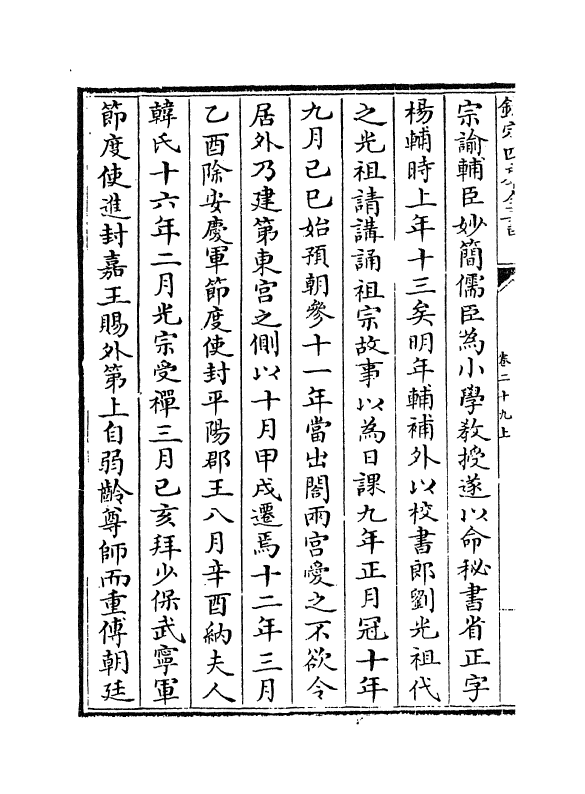 宗諭輔臣妙簡儒臣為小學教授遂以命秘書省正字
楊輔時上年十三矣明年輔補外以校書郎劉光祖代
之光祖請講誦祖宗故事以為日課九年正月冠十年
九月己巳始預朝參十一年當出閤兩宫愛之不欲令
居外乃建第東宫之側以十月甲戌遷焉十二年三月
乙酉除安慶軍節度使封平陽郡王八月辛酉納夫人
韓氏十六年二月光宗受禪三月己亥拜少保武寧軍
節度使進封嘉王賜外第上自弱齡尊師而重傅朝廷
卷二十九上